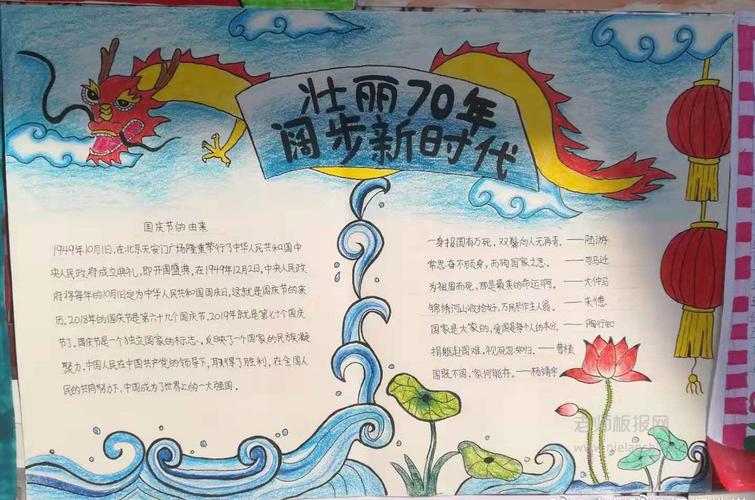 壮丽70年
阔步新时代
国庆节的由来
1949年10月1日,在北京天安门广场隆重举行了中华人民共和国中
央人民政府成立典礼,即开国盛典,在1949年12月2日,中央人民政
府将每年的10月1日定为中华人民共和国国庆日,这就是国庆节的来
历。2018年的国庆节是第六十九个国庆节,2019年就是第七十个国庆
节了。国庆节是一个独立国家的标志,反映了一个国家的民族凝
聚力。中国人民在中国共产党的领导下,取得了胜利,在全国人
民的共同努力下,中国成为了世界上的一大强国。
一身报国有万死,双鬓向人无再青。——陆游
常思奋不顾身,而殉国家之急。——司马迁
为祖国而死,那是最美的命运啊。——大仲马
锦绣河山收拾好,万民尽作主人翁。——朱德
国家是大家的,爱国是每个人的本分。——陶行知
捐躯赴国难,视死忽如归。——曹植
国既不国,家何能存。——杨靖宇
老师板报网